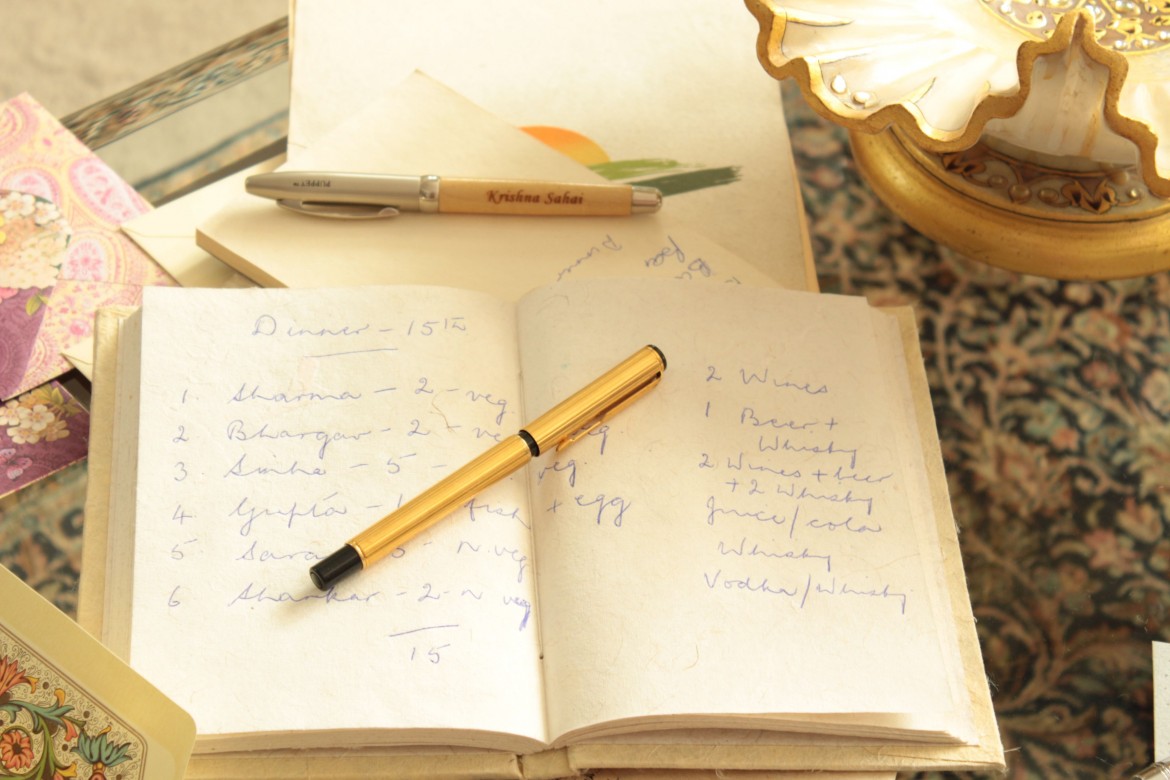 PUPPET™
Krishna Sahai
Dinner
Dinner - 15th
1. Sharma - 2 - veg.
2 Bhargav - 2 - veg.
3. Sinha - 5 - veg.
4. Gupta - fish + egg
5 - N. veg
6 Shankar - 2 - N veg
15
2 Wines
1 Beer +
Whisky
2 Wines + beer
+ 2 Whisky
Juice/cola
Whisky
Vodka/Whisky